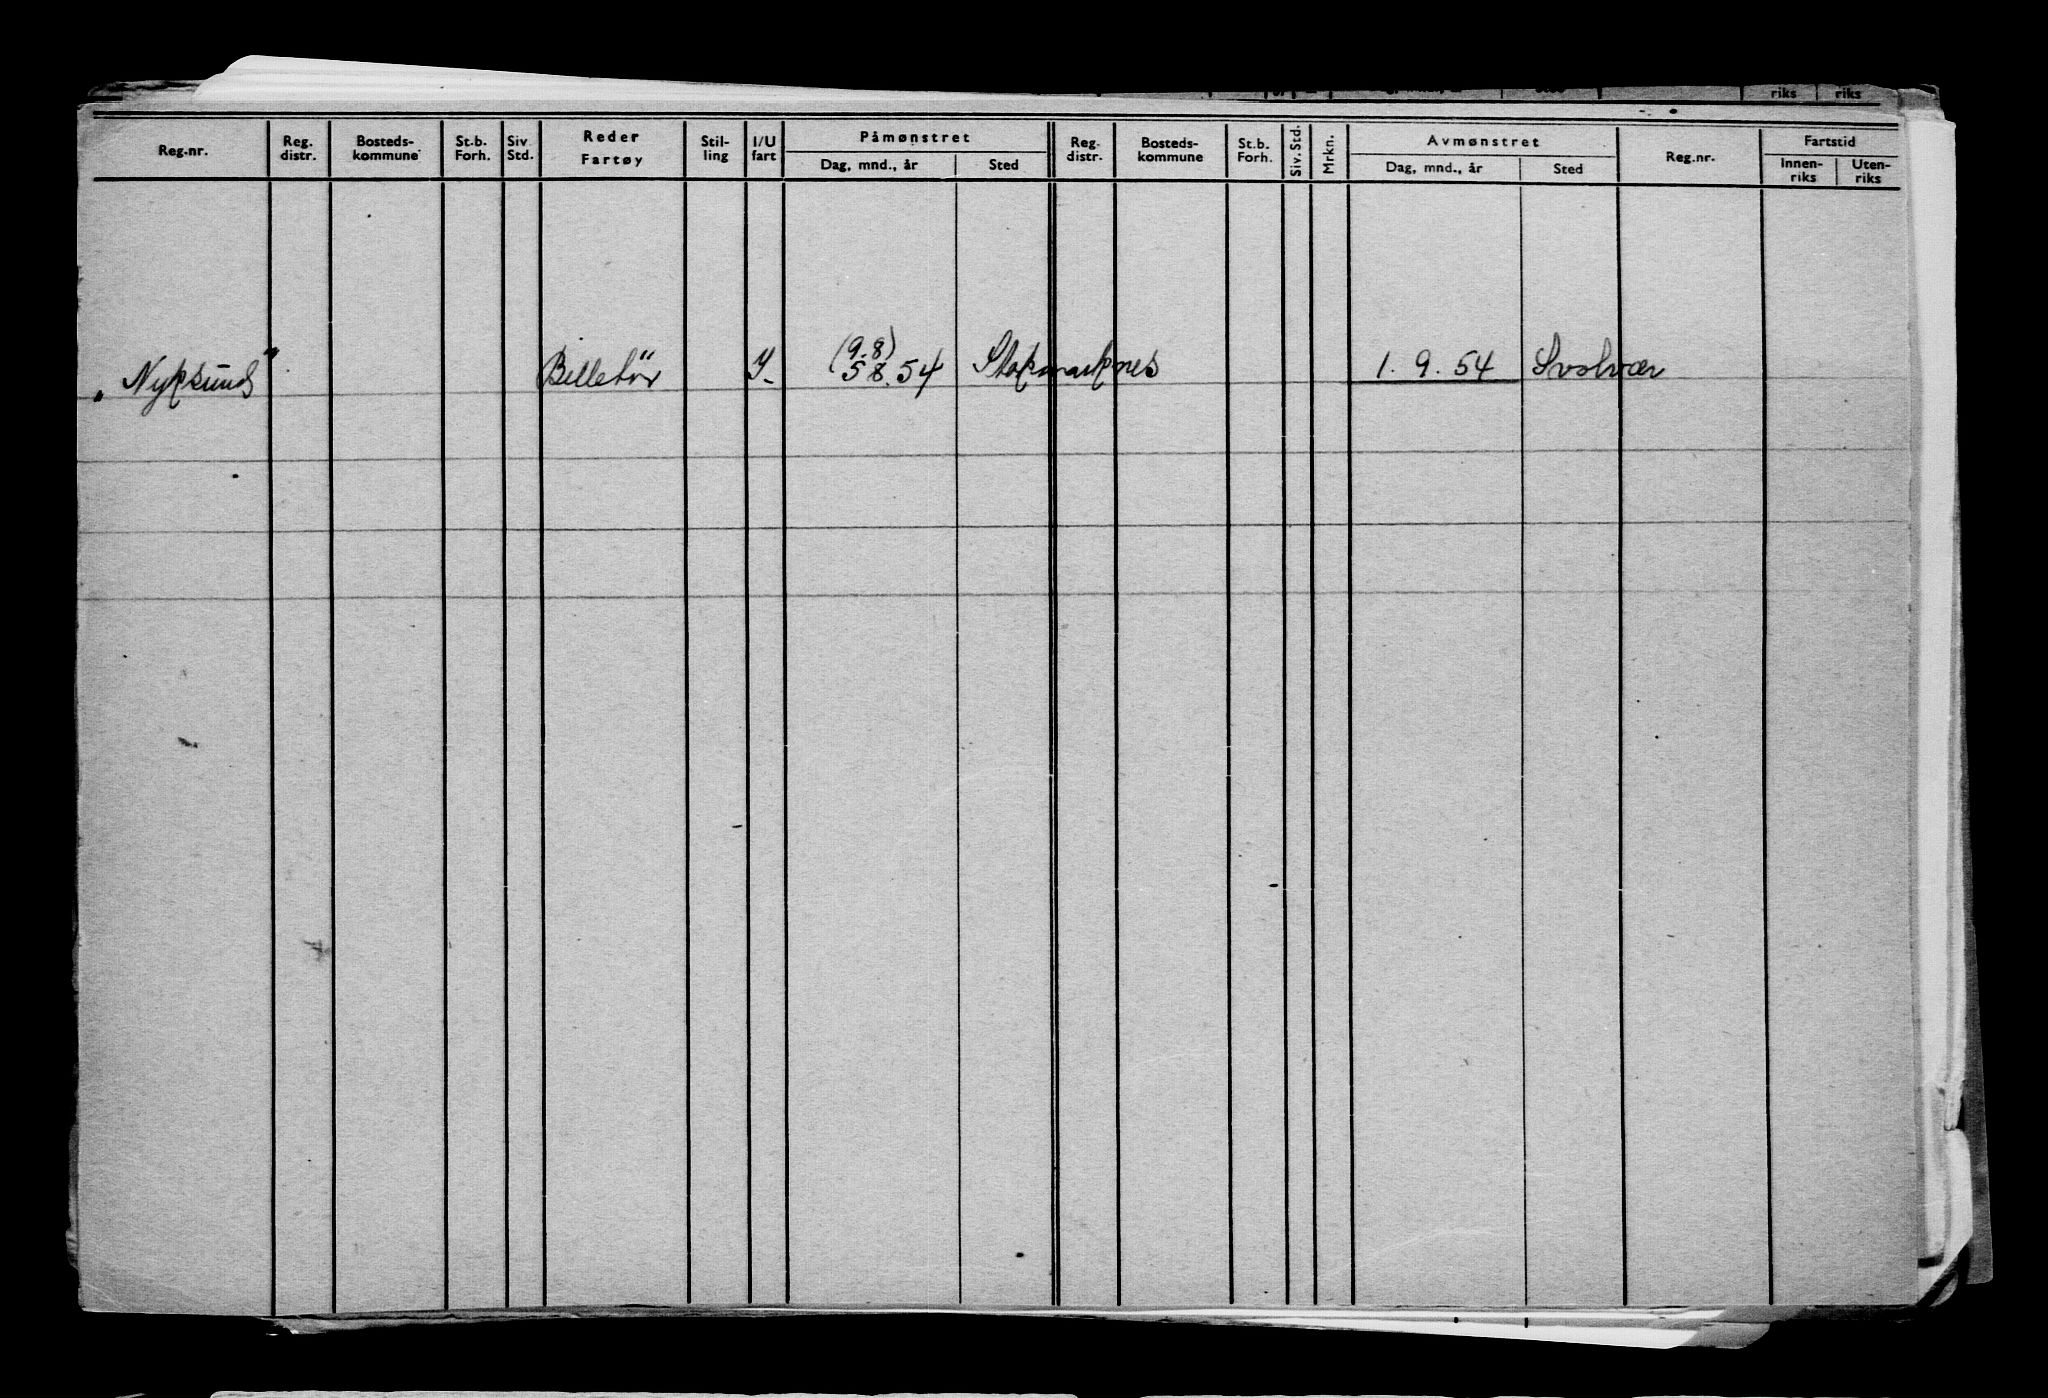 riks riks
Reg.nr. Reg. distr. Bosteds-kommune St.b. Forh. Siv. Std. Reder Fartøy Stil-ling I/U fart Påmønstret Dag, mnd., år Sted Reg. distr. Bosteds-kommune St.b. Forh. Siv. Std. Mrkn. Avmønstret Dag, mnd., år Sted Reg.nr. Fartstid Innen-riks Uten-riks
(9.8)
„Nyksund" Billetör I- 5 8.54 Stokmarknes 1. 9. 54 Svolvær